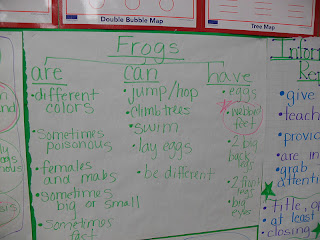 Double Bubble Map
Tree Map
Frogs
are
• different
colors
• Sometimes
poisonous
• females
and males
• sometimes
big or small
• sometimes
can
• jump/hop
• climb trees
• swim
• lay eggs
• be different
have
• eggs
• webbed
feet
• 2 big
back
legs
• 2 front
legs
• big
eyes
• give
• teach
• provid
• are in
• grab
attenti
• Title, o
at least
closing